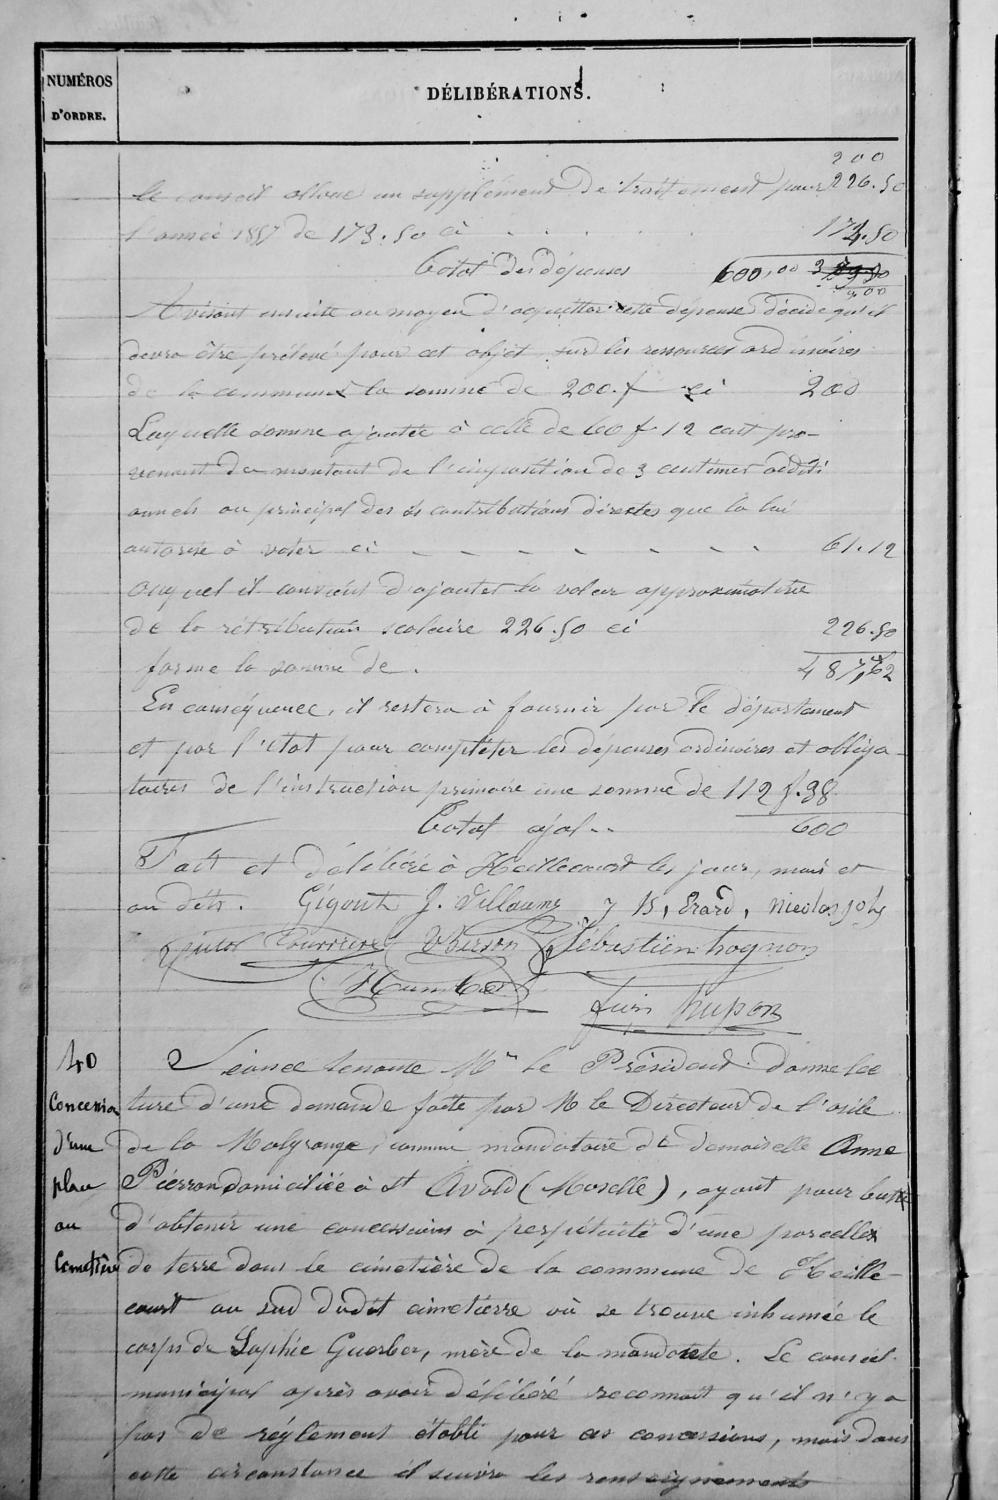 NUMÉROS
D'ORDRE.
DÉLIBÉRATIONS.
200
le conseil alloue un supplément de traitement pour 226.50
l'année 1857 de 173.50 ci . . . . . 173.50
Total des dépenses 600,00
300
Avisant ensuite au moyen d'acquitter cette dépense décide qu'il
devra être prélevé pour cet objet sur les ressources ordinaires
de la commune la somme de 200.f ci 200
Laquelle somme ajoutée à celle de 60 f 12 cent pro-
venant du montant de l'imposition de 3 centimes additi
onnels au principal des contributions directes que la loi
autorise à voter ci - - - - - - - - 61.12
auquel il convient d'ajouter la valeur approximative
de la rétribution scolaire 226.50 ci 226.50
forme la somme de . 487,62
En conséquence, il restera à fournir par le département
et par l'état pour compléter les dépenses ordinaires et obliga-
toires de l'instruction primaire une somme de 112 f.38
Total égal .. 600
Fait et délibéré à Heillecourt les jour, mois et
an dits. Gigout J. Villaume J B, Erard, nicolas joly
Sébastien hognon
Humbert
40
Concession
d'une
place
au
Cemetière
Séance tenante Mr le Président donne lec
ture d'une demande faite par M le Directeur de l'asile
de la Malgrange, comme mandataire de demoiselle Anne
Pierron domiciliée à St Avold (Moselle), ayant pour but
d'obtenir une concession à perpétuité d'une parcelle
de terre dans le cimetière de la commune de Heille-
court au sud dudit cimetierre où se trouve inhumée le
corps de Sophie Guerber, mère de la mandante. Le conseil
municipal après avoir délibéré reconnait qu'il n'y a
pas de réglement établi pour ces concessions, mais dans
cette circonstance il suivra les renseignements